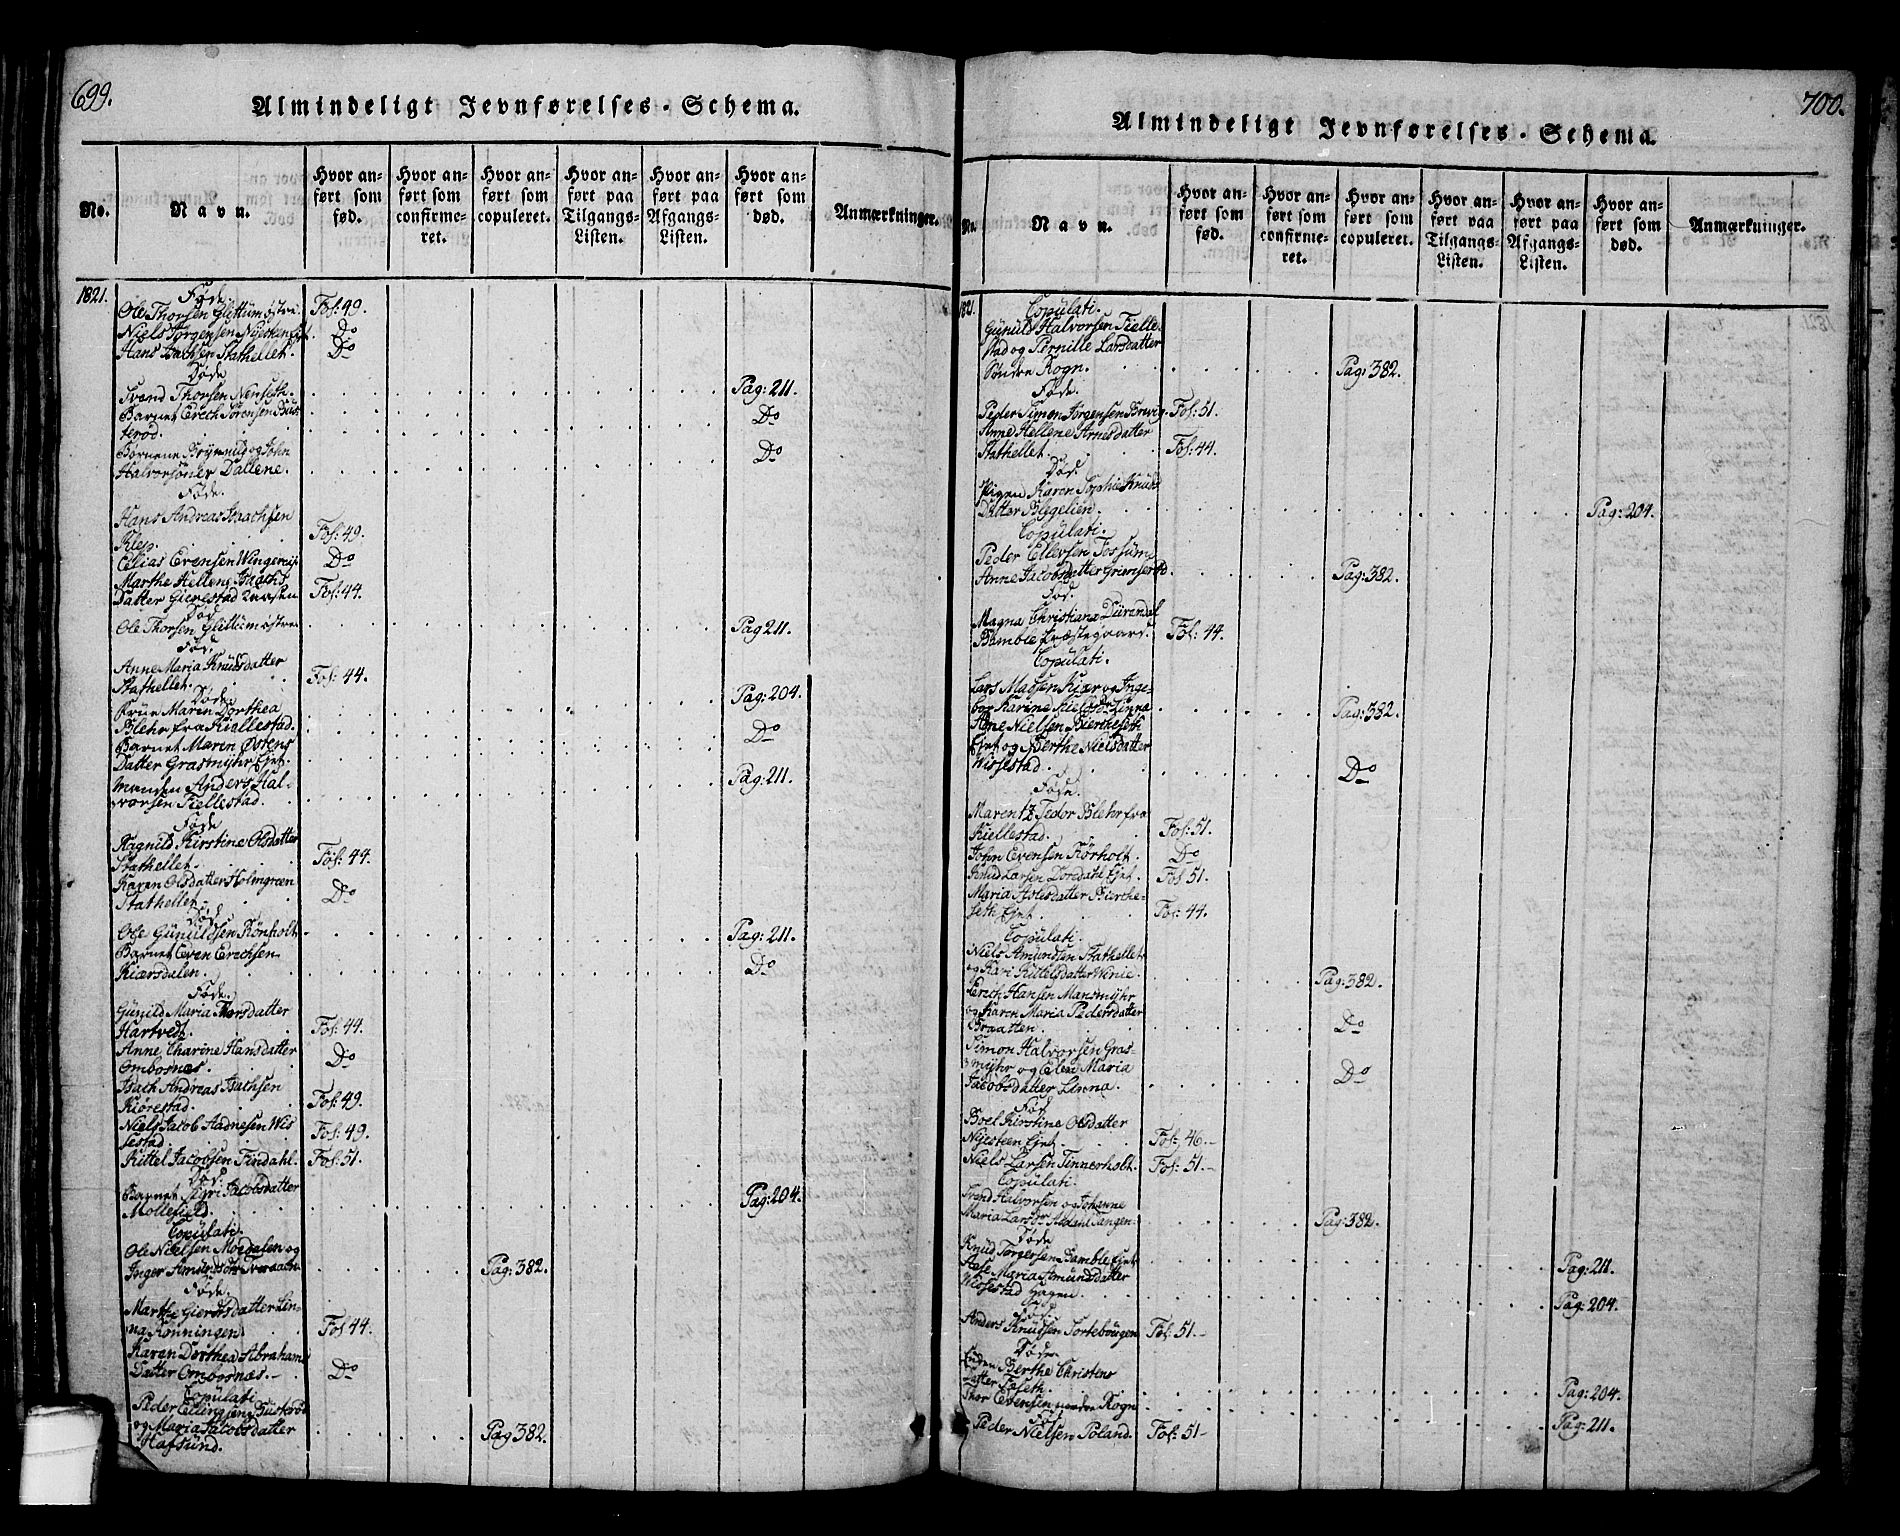 699.
Almindeligt Jevnførelses-Schema.
No.
Navn.
Hvor anført som fød.
Hvor anført som confirmeret.
Hvor anført som copuleret.
Hvor anført paa Tilgangs-Listen.
Hvor anført paa Afgangs-Listen.
Hvor anført som død.
Anmærkninger.
1821.
Føde
Ole Thorsen Glittum østre Fol: 49.
Niels Jørgensen Do
Hans Isachsen Stathellet. Do
Døde
Svend Thorsen Nenseth. Pag: 211.
Barnet Erich Sørensen Bus
terød. Do
Børnene Brynnild og John
Halvorsøner Dallene. Do
Føde.
Hans Andreas Isachsen
Klep. Fol: 49.
Elias Evensen Do
Marthe Hellene Isachs
Datter Gierestad Fol: 44.
Død
Ole Thorsen Glittum østre Pag 211.
Fød
Anne Maria Knudsdatter
Stathellet. Fol: 44.
Døde
Frue Maren Dorthea
Blehr fra Kiellestad. Pag: 204.
Barnet Maren Østens
Datter Grasmyhr Ejet. Do
Manden Anders Hal-
vorsen Fiellestad. Pag: 211.
Føde
Ragnild Kirstine Olsdatter
Stathellet. Fol: 44.
Karen Olsdatter Holmgreen
Stathellet. Do
Døde
Ole Gunuldsen Rønholt Pag: 211.
Barnet Even Erichsen
Kiærsdalen. Do
Føde.
Gunild Maria Thorsdatter
Hartvedt. Fol: 44.
Anne Charine Hansdatter
Ombosnæs. Do
Isach Andreas Isachsen
Kiørestad. Fol: 49.
Niels Jacob Aadnesen Wis
sestad Fol: 49.
Kittel Jacobsen Findahl. Fol: 51.
Død.
Barnet Sigri Jacobsdatter
Mollefield. Pag: 204.
Copulati.
Ole Nielsen Mordalen og
Inger Pag: 382.
Føde.
Marthe Gierdsdatter Lin-
na Rønningen Fol 44.
Karen Dorthea Abrahams
Datter Ombosnæs. Do
Copulati
Peder Ellingsen Buskrød
og Maria Jacobsdatter
Hafsund. Pag 382.
700.
Almindeligt Jevnførelses-Schema.
No.
Navn.
Hvor anført som fød.
Hvor anført som confirmeret.
Hvor anført som copuleret.
Hvor anført paa Tilgangs-Listen.
Hvor anført paa Afgangs-Listen.
Hvor anført som død.
Anmærkninger.
1821.
Copulati.
Gunuld Halvorsen Fielle
stad og Pernille Larsdatter
Søndre Rogn. Pag: 382.
Føde.
Peder Simon Jørgensen Brevig. Fol: 51.
Anne Hellene Arnesdatter
Stathellet. Fol: 44.
Død.
Pigen Karen Sophie Knuds
Datter Pag: 204.
Copulati.
Peder Ellevsen Fossum
Anne Jacobsdatter Pag: 382.
Fød.
Magna Christiana Durendal
Bamble Præstegaard. Fol: 44.
Copulati.
Lars Madsen Kjær og Inge-
bor Karine Linna Pag: 382.
Arne Nielsen Bierkeseth
Ejet og Berthe Nielsdatter
Wissestad. Do
Føde.
Marentz Fedor Blehr fra
Kiellestad. Fol: 51.
John Evensen Rørholt. Do
Knud Larsen Dordahl Ejet. Fol 51.
Maria Aslesdatter Bierke-
seth Ejet. Fol: 44.
Copulati.
Niels Amundsen Stathellet
og Kari Kittelsdatter Winie. Pag: 382.
Erich Hansen Mansmyhr
og Karen Maria Pedersdatter
Braatten. Do
Simon Halvorsen Gras-
myhr og Elen Maria
Jacobsdatter Linna. Do
Fød
Boel Kirstine Olsdatter
Nysteen Ejet. Fol: 46.-
Niels Larsen Finnerholt. Fol: 51.-
Copulati
Svend Halvorsen og Johanne
Maria Larsdtr Aldahl Tangen. Pag: 382.
Døde
Knud Torgersen Bamble Ejet Pag: 211.
Aase Maria Amundsdatter
Wissestad Hagen. Pag: 204.
Fød.
Anders Knudsen Fol: 51.-
Døde.
Enken Berthe Christens
Datter Foseth. Pag: 204.
Thor Evensen nordre Rogn Pag: 211.
Fød
Peder Nielsen Poland. Fol: 51-